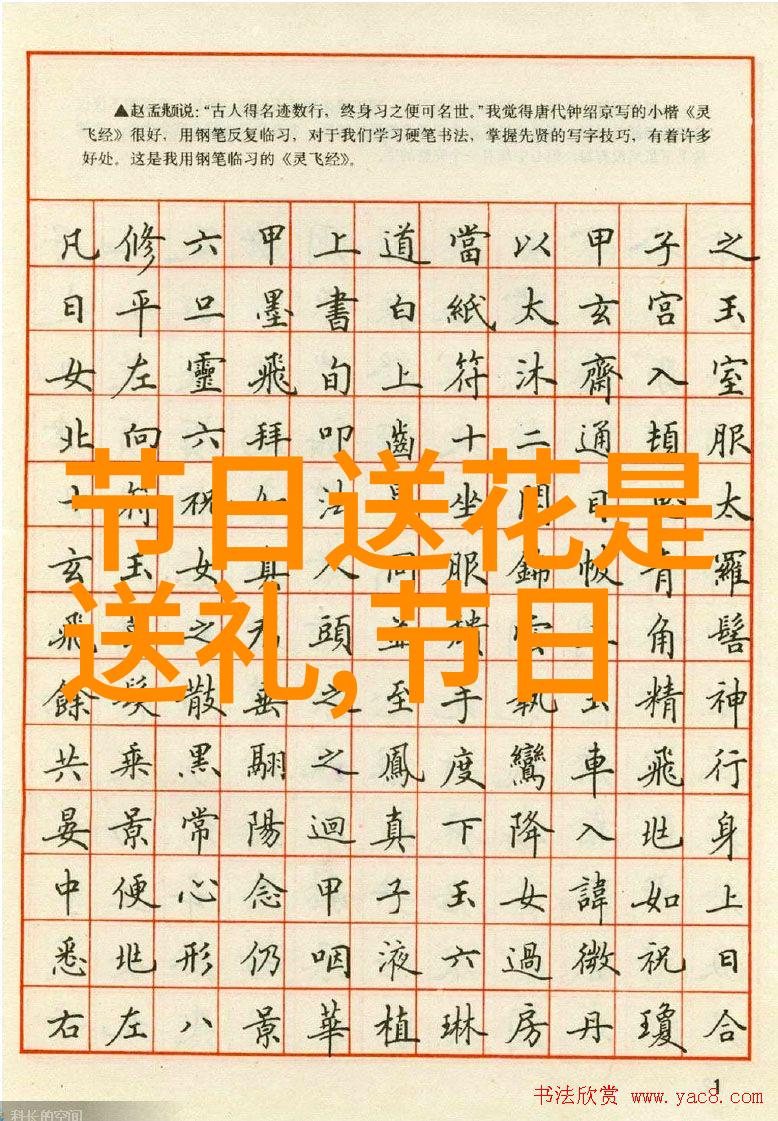 ▲赵孟頫说：“古人得名迹数行，终身习之便可名世。”我觉得唐代钟绍京写的小楷《灵
飞经》很好，用钢笔反复临习，对于我们学习硬笔书法，掌握先贤的写字技巧，有着许多
好处。这是我用钢笔临习的《灵飞经》。
凡修六甲上道當以甲子之
日平旦墨書白紙太玄宮玉
女左靈飛旬上符沐齋入室
北向六拜叩齒十二通頓服
節日送花是
符祝法坐太
玄玉女真人同服錦帔青羅
送礼,节日
飛之頭並角髻
餘髮散垂之至手執玉精神
共乘黑翮之鳳度鸞車飛行
晏景常陽迴真下降入北身
中便心念甲子玉女諱如上
悉北形仍咽液六過微祝日
右左八景華植琳房丹瓊合
1
书法欣赏 www.yac8.com
科长的空间